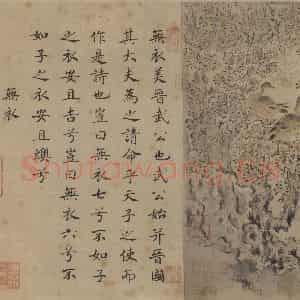 無衣美晉武公也武公始并晉國
其大夫為之請命乎天子之使而
作是詩也豈曰無衣七兮不如子
之衣安且吉兮豈曰無衣六兮不
如子之衣安且燠兮
無衣